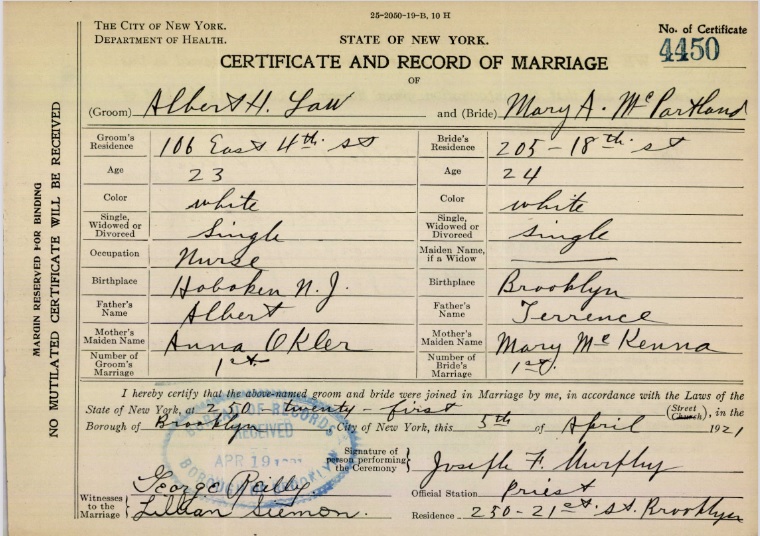 25-2050-19-B, 10 H
THE CITY OF NEW YORK.
DEPARTMENT OF HEALTH.
STATE OF NEW YORK.
No. of Certificate
4450
CERTIFICATE AND RECORD OF MARRIAGE
OF
(Groom) Albert H. Law and (Bride) Mary A. McPartland
Groom's Residence 106 East 4th st Bride's Residence 205-18th st
Age 23 Age 24
Color white Color white
Single, Widowed or Divorced Single Single, Widowed or Divorced Single
Occupation Nurse Maiden Name, if a Widow
Birthplace Hoboken N.J. Birthplace Brooklyn
Father's Name Albert Father's Name Terrence
Mother's Maiden Name Anna Okler Mother's Maiden Name Mary McKenna
Number of Groom's Marriage 1st. Number of Bride's Marriage 1st.
I hereby certify that the above-named groom and bride were joined in Marriage by me, in accordance with the Laws of the
State of New York, at 250 twenty-first (Street Church), in the
Borough of Brooklyn City of New York, this 5th of April 1921
OF RECORDS
RECEIVED
APR 19
BOROUGH BROOKLYN
Signature of person performing the Ceremony Joseph F. Murphy
Witnesses to the Marriage George Reilly
Lillian Siemon.
Official Station Priest
Residence 250-21st. st. Brooklyn
MARGIN RESERVED FOR BINDING
NO MUTILATED CERTIFICATE WILL BE RECEIVED